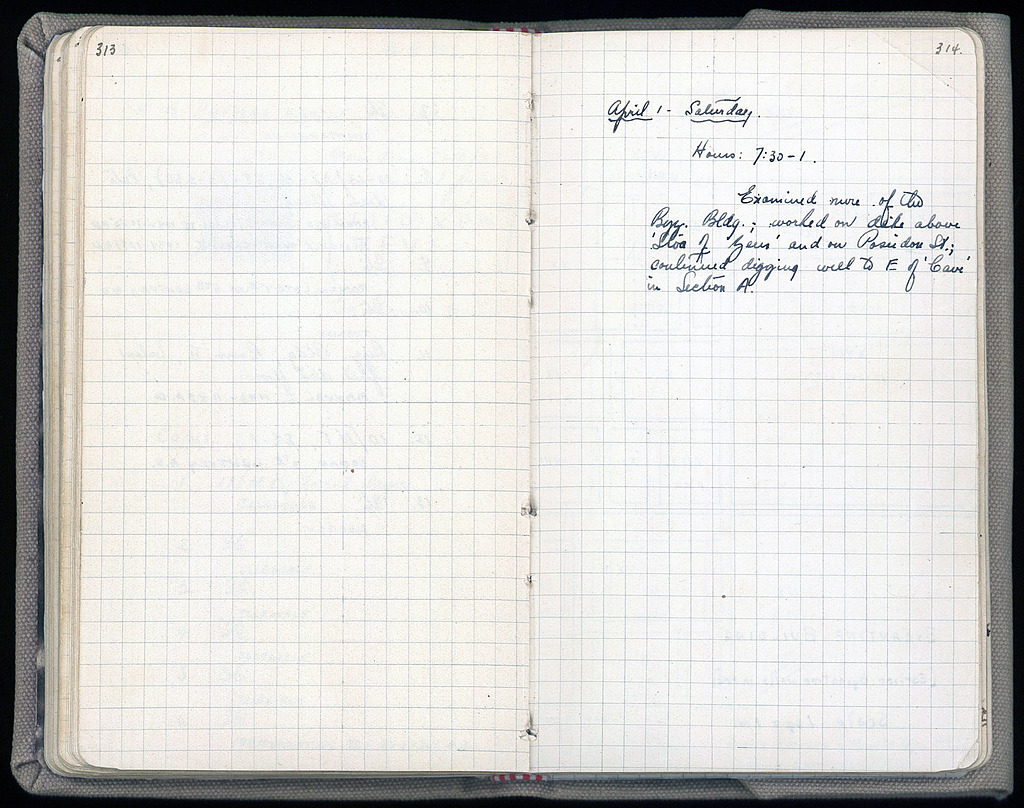 313
314.
April 1 - Saturday.
Hours: 7:30-1.
Examined more of the
Byz. Bldg.; worked on dike above
'Stoa of Zeus' and on Poseidon St.;
continued digging well to E of 'Cave'
in Section A.